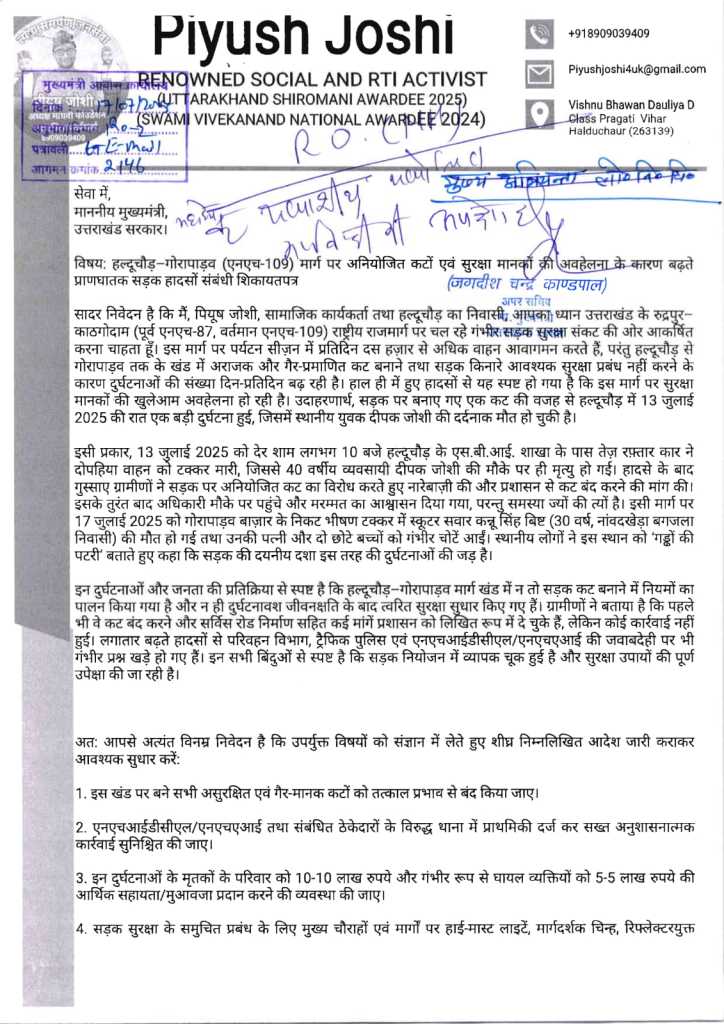 Piyush Joshi
RENOWNED SOCIAL AND RTI ACTIVIST
(UTTARAKHAND SHIROMANI AWARDEE 2025)
(SWAMI VIVEKANAND NATIONAL AWARDEE 2024)
+918909039409
Piyushjoshi4uk@gmail.com
Vishnu Bhawan Dauliya D
Class Pragati Vihar
Halduchaur (263139)
मुख्यमंत्री आवास कार्यालय
दिनांक 17/07/2025
पत्रावली E-Mail
आगमन क्रमांक 2146
सेवा में,
माननीय मुख्यमंत्री,
उत्तराखंड सरकार।
मुख्य अभियन्ता लो० नि० वि०
विषय: हल्दूचौड़–गोरापाड़व (एनएच-109) मार्ग पर अनियोजित कटों एवं सुरक्षा मानकों की अवहेलना के कारण बढ़ते
प्राणघातक सड़क हादसों संबंधी शिकायतपत्र
(जगदीश चन्द्र काण्डपाल)
अपर सचिव
सादर निवेदन है कि मैं, पियूष जोशी, सामाजिक कार्यकर्ता तथा हल्दूचौड़ का निवासी, आपका ध्यान उत्तराखंड के रुद्रपुर–
काठगोदाम (पूर्व एनएच-87, वर्तमान एनएच-109) राष्ट्रीय राजमार्ग पर चल रहे गंभीर सड़क सुरक्षा संकट की ओर आकर्षित
करना चाहता हूँ। इस मार्ग पर पर्यटन सीज़न में प्रतिदिन दस हज़ार से अधिक वाहन आवागमन करते हैं, परंतु हल्दूचौड़ से
गोरापाड़व तक के खंड में अराजक और गैर-प्रमाणित कट बनाने तथा सड़क किनारे आवश्यक सुरक्षा प्रबंध नहीं करने के
कारण दुर्घटनाओं की संख्या दिन-प्रतिदिन बढ़ रही है। हाल ही में हुए हादसों से यह स्पष्ट हो गया है कि इस मार्ग पर सुरक्षा
मानकों की खुलेआम अवहेलना हो रही है। उदाहरणार्थ, सड़क पर बनाए गए एक कट की वजह से हल्दूचौड़ में 13 जुलाई
2025 की रात एक बड़ी दुर्घटना हुई, जिसमें स्थानीय युवक दीपक जोशी की दर्दनाक मौत हो चुकी है।
इसी प्रकार, 13 जुलाई 2025 को देर शाम लगभग 10 बजे हल्दूचौड़ के एस.बी.आई. शाखा के पास तेज़ रफ़्तार कार ने
दोपहिया वाहन को टक्कर मारी, जिससे 40 वर्षीय व्यवसायी दीपक जोशी की मौके पर ही मृत्यु हो गई। हादसे के बाद
गुस्साए ग्रामीणों ने सड़क पर अनियोजित कट का विरोध करते हुए नारेबाज़ी की और प्रशासन से कट बंद करने की मांग की।
इसके तुरंत बाद अधिकारी मौके पर पहुंचे और मरम्मत का आश्वासन दिया गया, परन्तु समस्या ज्यों की त्यों है। इसी मार्ग पर
17 जुलाई 2025 को गोरापाड़व बाज़ार के निकट भीषण टक्कर में स्कूटर सवार कन्नू सिंह बिष्ट (30 वर्ष, नांवदखेड़ा बगजला
निवासी) की मौत हो गई तथा उनकी पत्नी और दो छोटे बच्चों को गंभीर चोटें आईं। स्थानीय लोगों ने इस स्थान को ‘गड्ढों की
पटरी’ बताते हुए कहा कि सड़क की दयनीय दशा इस तरह की दुर्घटनाओं की जड़ है।
इन दुर्घटनाओं और जनता की प्रतिक्रिया से स्पष्ट है कि हल्दूचौड़–गोरापाड़व मार्ग खंड में न तो सड़क कट बनाने में नियमों का
पालन किया गया है और न ही दुर्घटनावश जीवनक्षति के बाद त्वरित सुरक्षा सुधार किए गए हैं। ग्रामीणों ने बताया है कि पहले
भी वे कट बंद करने और सर्विस रोड निर्माण सहित कई मांगें प्रशासन को लिखित रूप में दे चुके हैं, लेकिन कोई कार्रवाई नहीं
हुई। लगातार बढ़ते हादसों से परिवहन विभाग, ट्रैफिक पुलिस एवं एनएचआईडीसीएल/एनएचएआई की जवाबदेही पर भी
गंभीर प्रश्न खड़े हो गए हैं। इन सभी बिंदुओं से स्पष्ट है कि सड़क नियोजन में व्यापक चूक हुई है और सुरक्षा उपायों की पूर्ण
उपेक्षा की जा रही है।
अत: आपसे अत्यंत विनम्र निवेदन है कि उपर्युक्त विषयों को संज्ञान में लेते हुए शीघ्र निम्नलिखित आदेश जारी कराकर
आवश्यक सुधार करें:
1. इस खंड पर बने सभी असुरक्षित एवं गैर-मानक कटों को तत्काल प्रभाव से बंद किया जाए।
2. एनएचआईडीसीएल/एनएचएआई तथा संबंधित ठेकेदारों के विरुद्ध थाना में प्राथमिकी दर्ज कर सख्त अनुशासनात्मक
कार्रवाई सुनिश्चित की जाए।
3. इन दुर्घटनाओं के मृतकों के परिवार को 10-10 लाख रुपये और गंभीर रूप से घायल व्यक्तियों को 5-5 लाख रुपये की
आर्थिक सहायता/मुआवजा प्रदान करने की व्यवस्था की जाए।
4. सड़क सुरक्षा के समुचित प्रबंध के लिए मुख्य चौराहों एवं मार्गों पर हाई-मास्ट लाइटें, मार्गदर्शक चिन्ह, रिफ्लेक्टरयुक्त